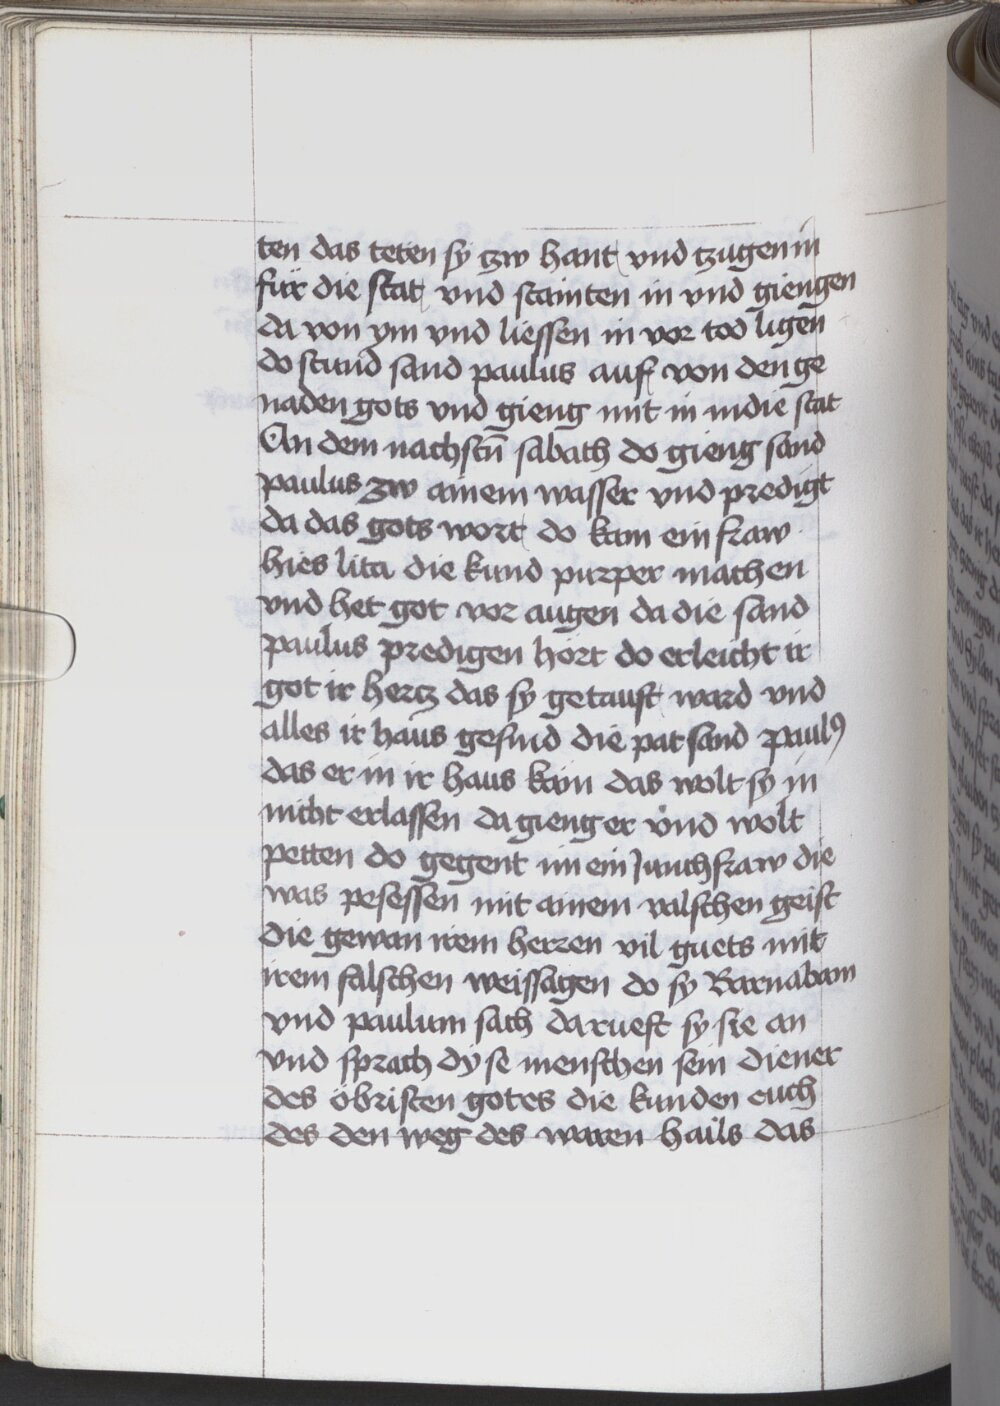 ten das teten sy tzw hant und tzugen in
für die stat und stainten in und giengen
da von ym und liessen in vor tod ligen
do stund sand paulus auf von den ge
naden gots und gieng mit in in die stat
An dem nachstn̄ sabath do gieng sand
paulus zw ainem wasser und predigt
da das gots wort do kam ein fraw
hies lita die kund purper machen
und het got vor augen da die sand
paulus predigen hort do erleicht ir
got ir hertz das sy getauft ward und
alles ir haus gesind die pat sand paulꝰ
das er in ir haus kām das wolt sy in
nicht erlassen da gieng er und wolt
petten do gegent im ein junchfraw die
was pesessen mit ainem valschen geist
die gewan irem herren vil guets mit
irem falschen weissagen do sy Barnabam
und paulum sach da rueft sy sie an
und sprach dyse menschen sein diener
des obristen gotes die kunden euch
des den weg des waren hails das